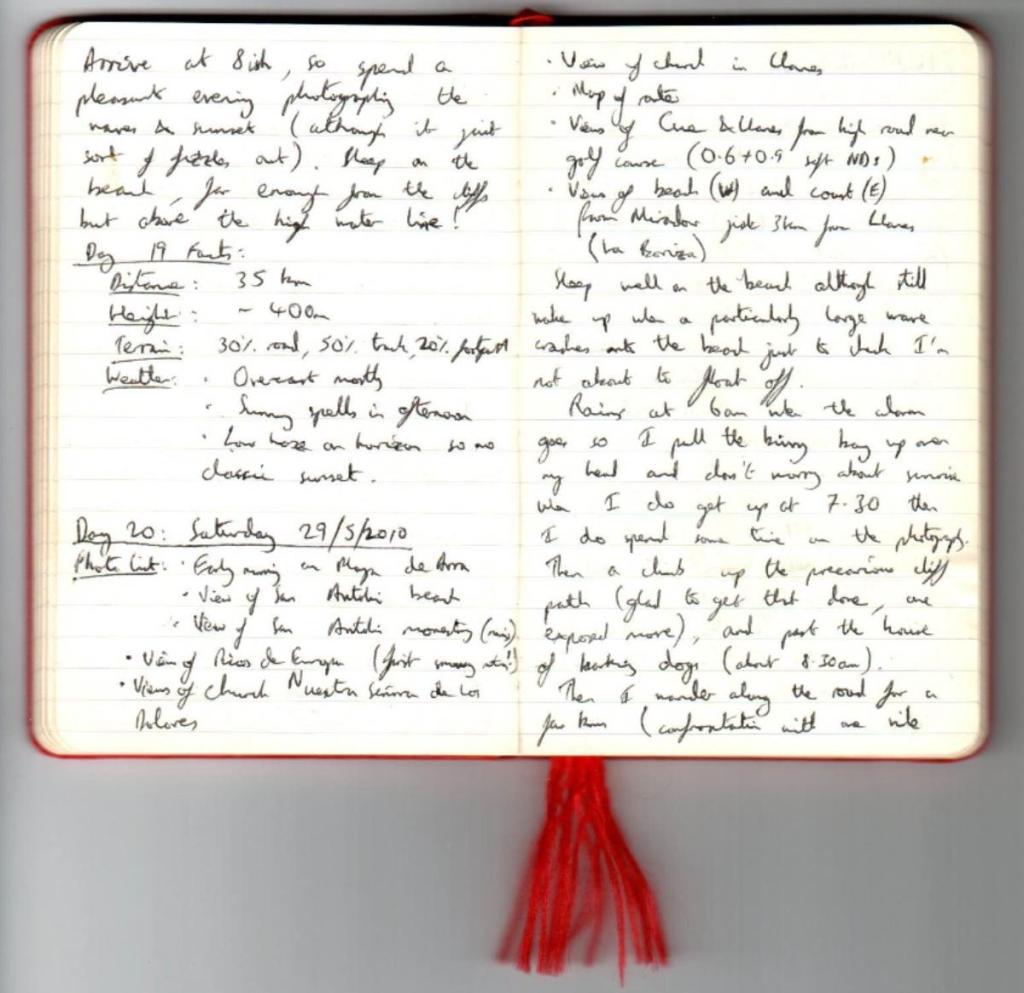 Arrive at 8ish, so spend a
pleasant evening photographing the
waves & sunset (although it just
sort of fizzles out). Sleep on the
beach, far enough from the cliffs
but above the high water line!
Day 19 Facts:
Distance: 35 km
Height: ~ 400m
Terrain: 30% road, 50% track, 20% footpath
Weather: • Overcast mostly
• Sunny spells in afternoon
• Low haze on horizon so no
classic sunset.
Day 20: Saturday 29/5/2010
Photo List: • Early morning on Playa de
• View of San Antolin beach
• View of San Antolin monastery (ruins)
• View of Picos de Europa (first snowy)
• Views of church Nuestra Señora de Los
Dolores
• View of church in Llanes
• Map of route
• Views of Cue & Llanes from high road near
golf course (0.6+0.9 soft NDs)
• Views of beach (W) and coast (E)
from Mirador just 3km from Llanes
(La Boriza)
Sleep well on the beach although still
wake up when a particularly large wave
crashes onto the beach just to check I'm
not about to float off.
Raining at 6am when the alarm
goes so I pull the bivvy bag up over
my head and don't worry about sunrise
When I do get up at 7.30 then
I do spend some time on the photographs.
Then a climb up the precarious cliff
path (glad to get that done, one
exposed move), and past the house
of barking dogs (about 8.30am).
Then I wander along the road for a
few kms (confrontation with one